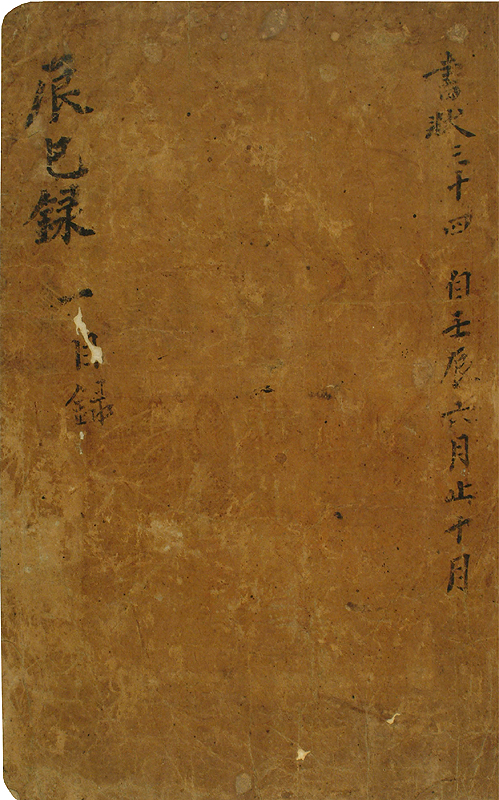 書狀三十四 自壬辰六月止十月
辰巳録 一目錄